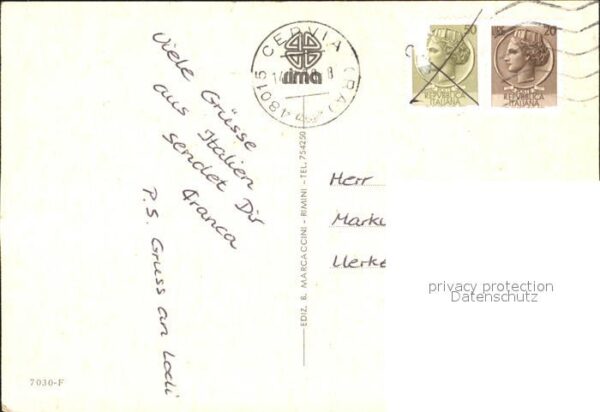 Viele Grüsse
aus Italien
sendet Dir
Franca
P.S. Gruss an Loeli
48015 CERVIA (RA)
rima
8
50
REPVBBLICA
ITALIANA
20
REPVBBLICA
ITALIANA
EDIZ. B. MARCACCINI - RIMINI - TEL. 754250
Herr
Marku
privacy protection
Datenschutz
7030-F